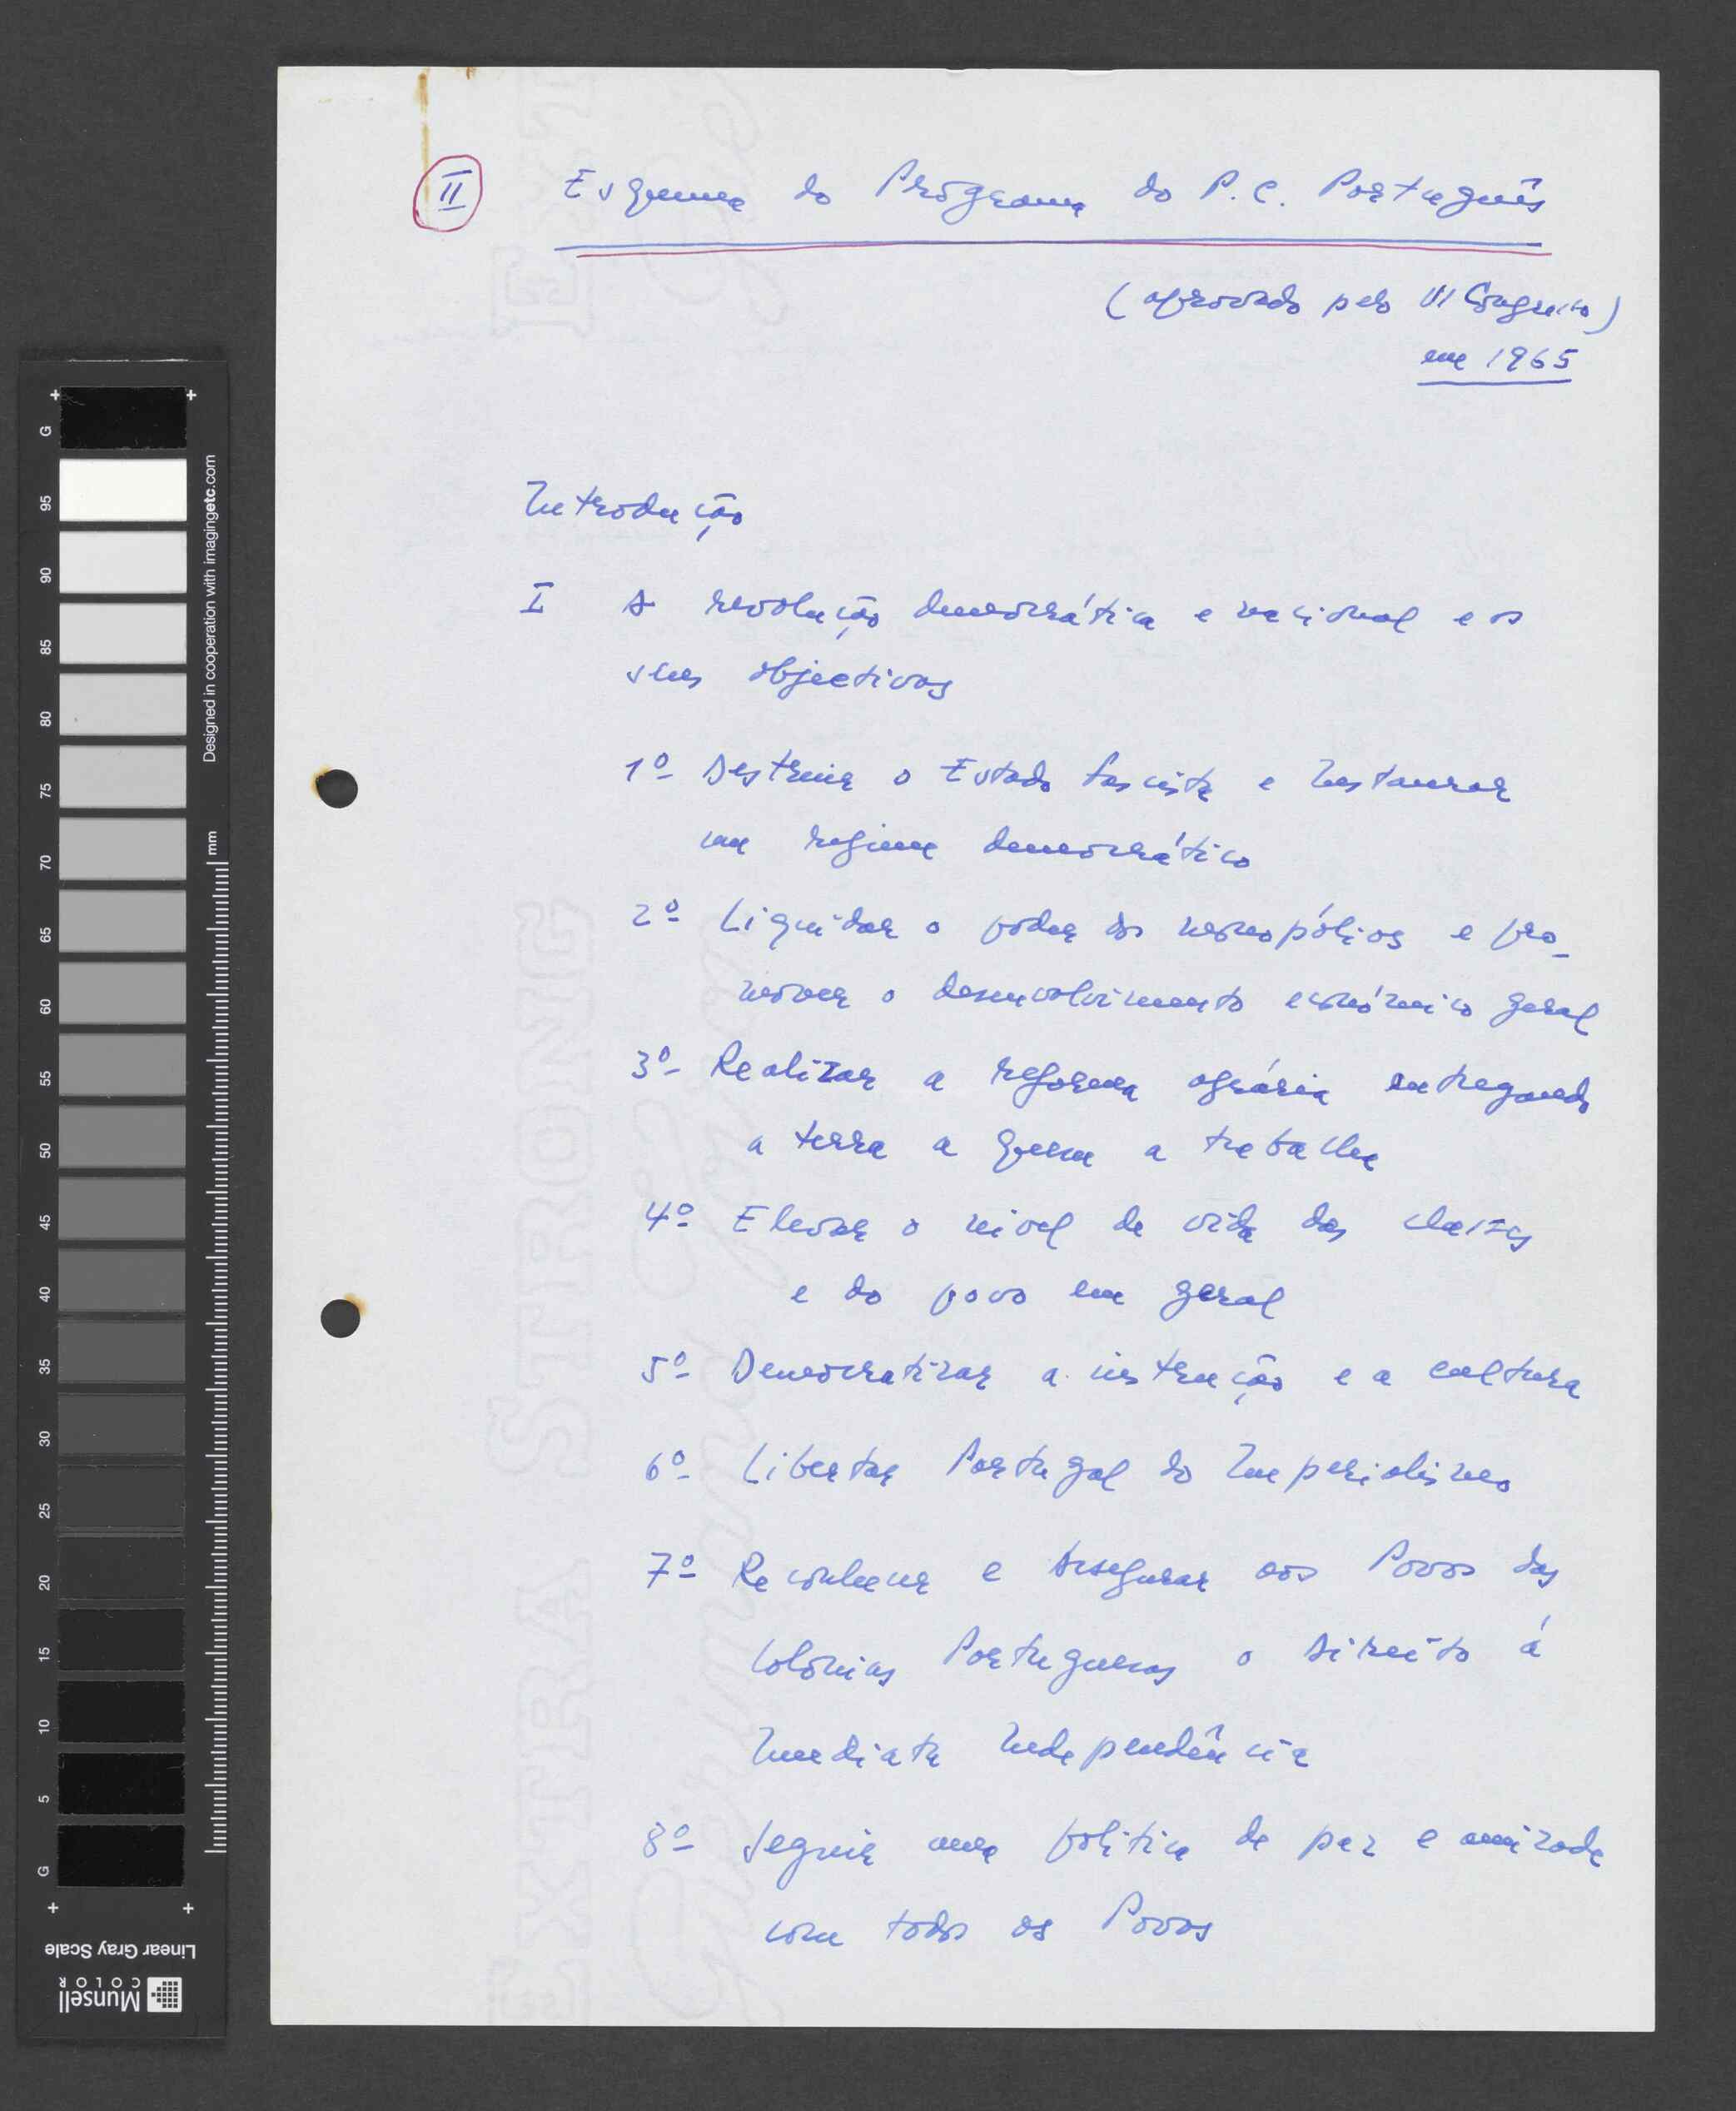 II Esquema do Programa do P.C. Português
(aprovado pelo VI Congresso)
em 1965
Introdução
I A revolução democrática e nacional e os
seus objectivos
1º Destruir o Estado fascista e Instaurar
um regime democrático
2º Liquidar o poder dos monopólios e pro_
mover o desenvolvimento económico geral
3º Realizar a reforma agrária entregando
a terra a quem a trabalha
4º Elevar o nivel de vida das classes
e do povo em geral
5º Democratizar a instrução e a cultura
6º Libertar Portugal do Imperialismo
7º Reconhecer e Assegurar aos Povos das
Colónias Portuguesas o Direito á
Imediata Independência
8º Seguir uma politica de paz e amizade
com todos os Povos
EXTRA STRONG
G 95 90 85 80 75 70 65 60 55 50 45 40 35 30 25 20 15 10 5 G
Designed in cooperation with imagingetc.com
mm
Linear Gray Scale
Munsell
COLOR